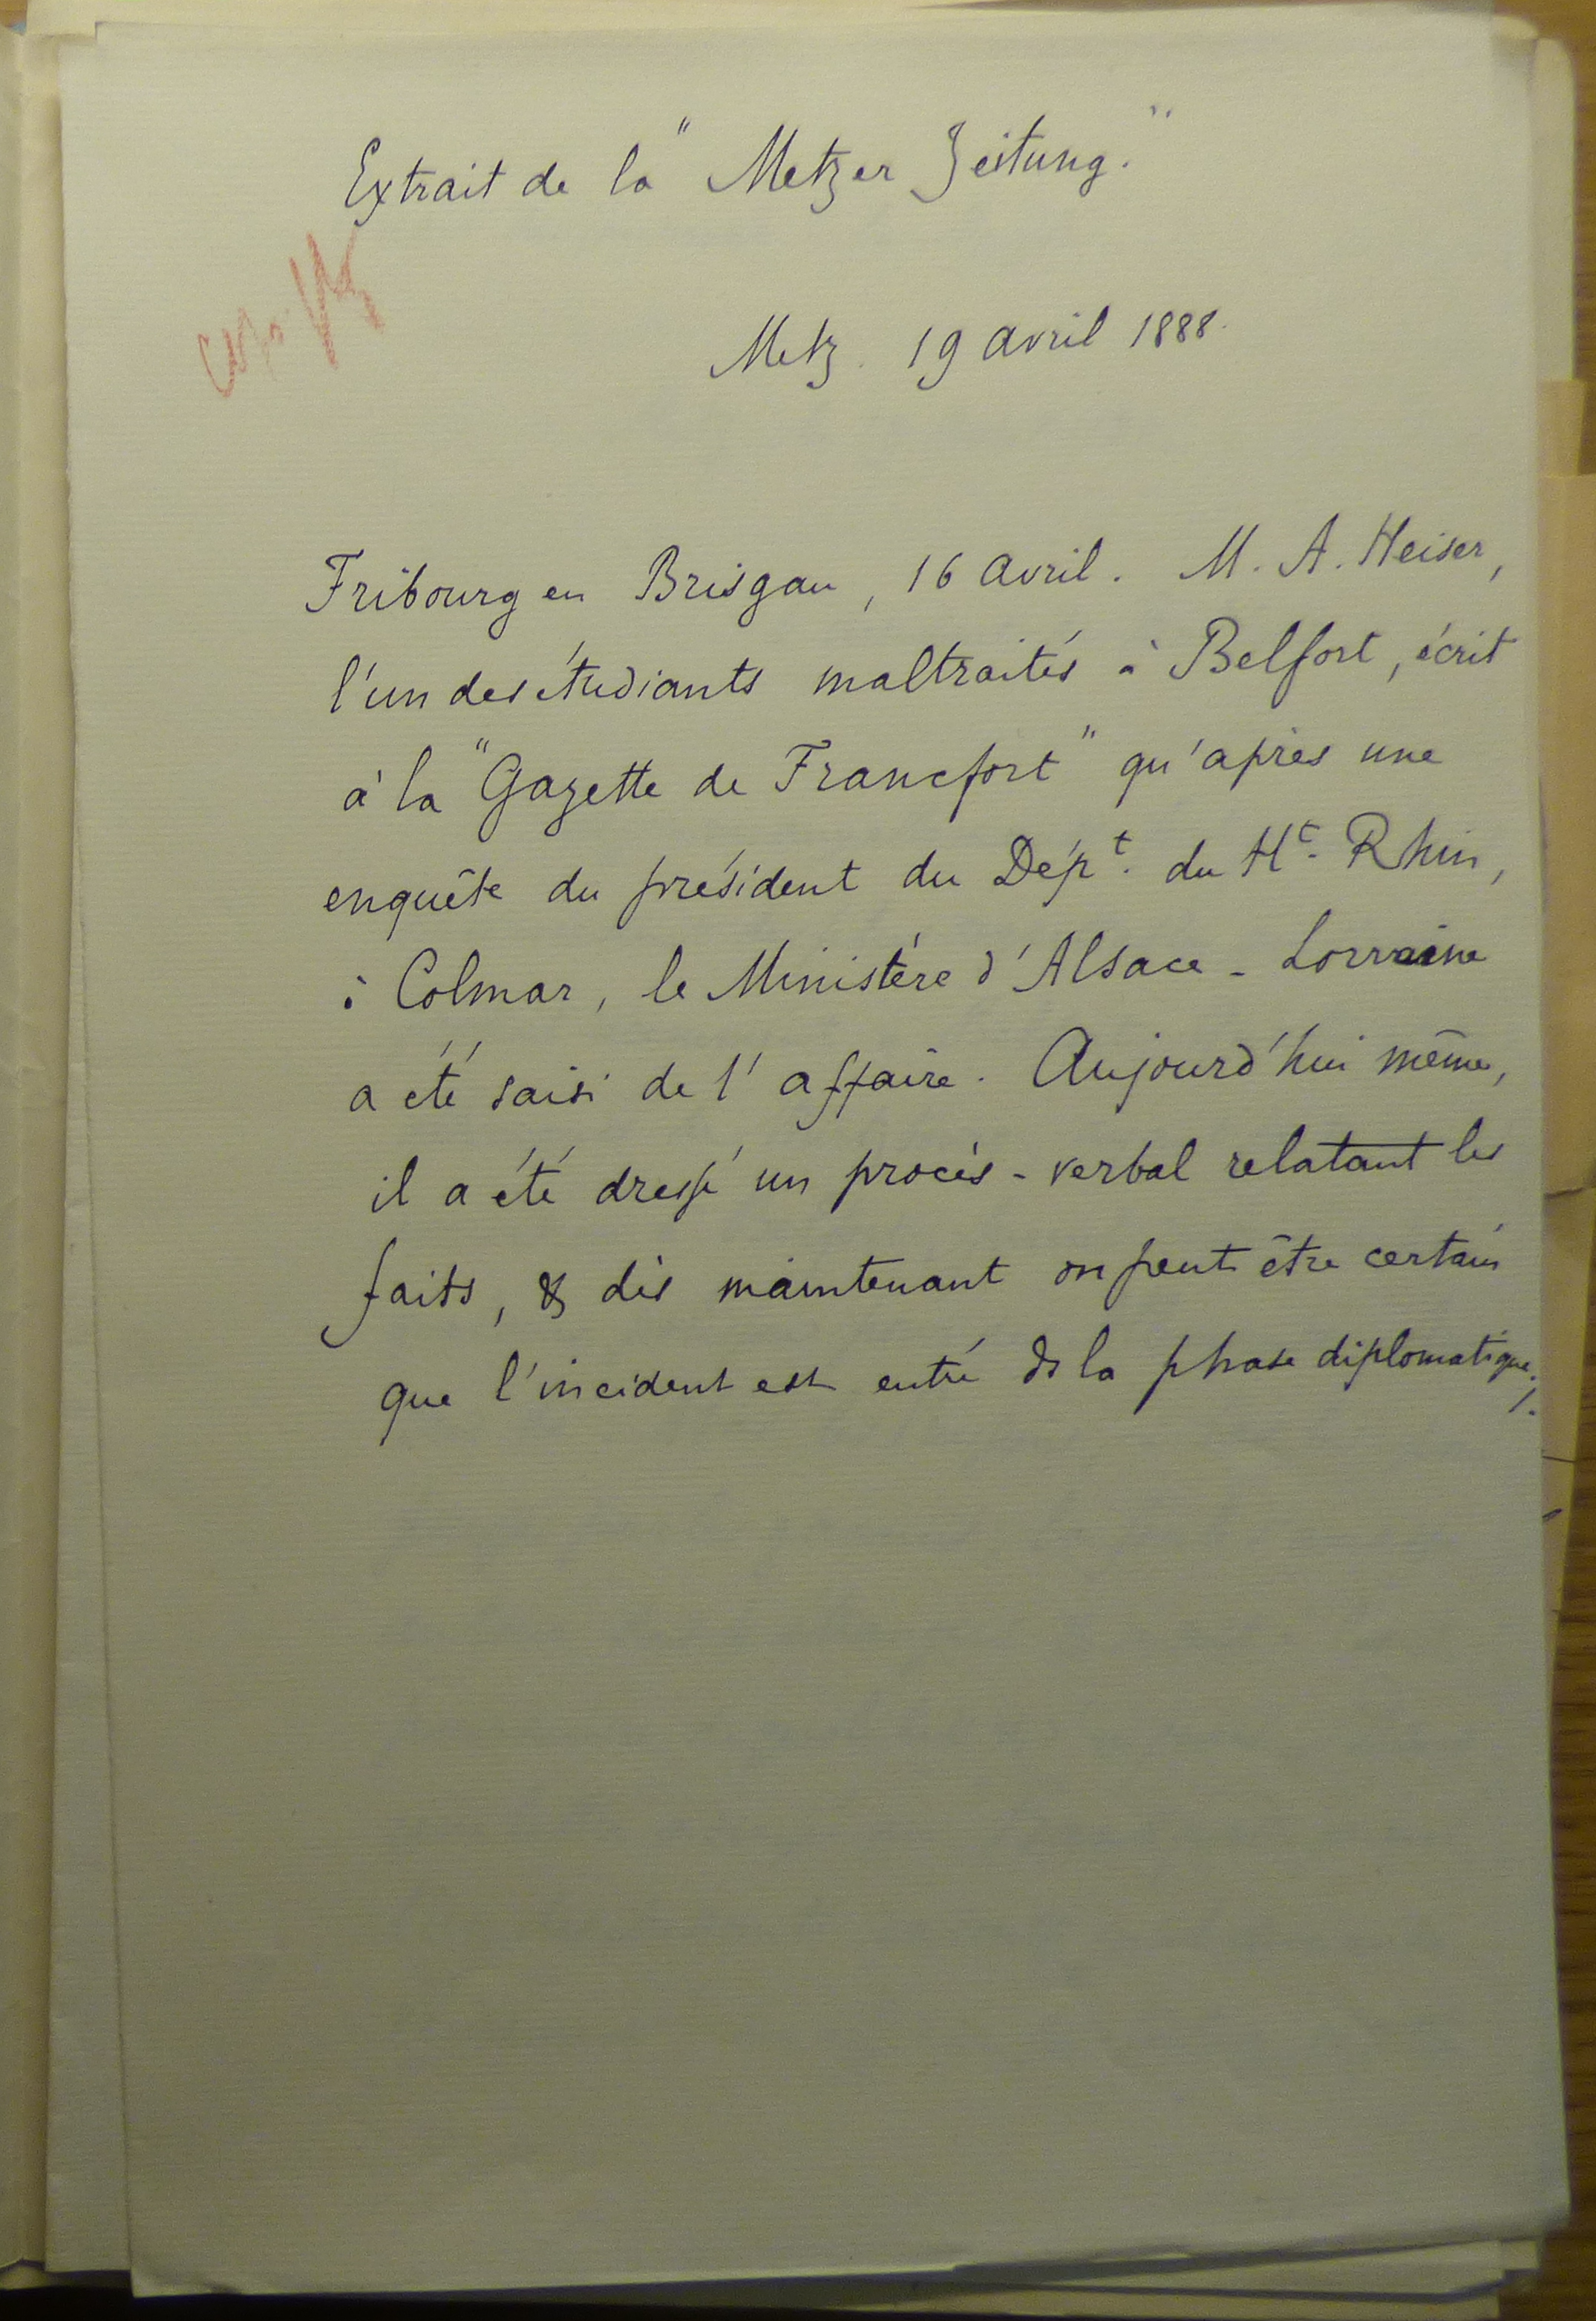 Extrait de la "Metzer Zeitung."
Metz. 19 avril 1888.
Fribourg en Brisgau, 16 avril. M. A. Heiser,
l'un des étudiants maltraités à Belfort, écrit
à la "Gazette de Francfort" qu'après une
enquête du président du Dépt. du Ht-Rhin,
à Colmar, le Ministère d'Alsace-Lorraine
a été saisi de l'affaire. Aujourd'hui même,
il a été dressé un procès-verbal relatant les
faits, & dès maintenant on peut être certain
que l'incident est entré ds la phase diplomatique./.